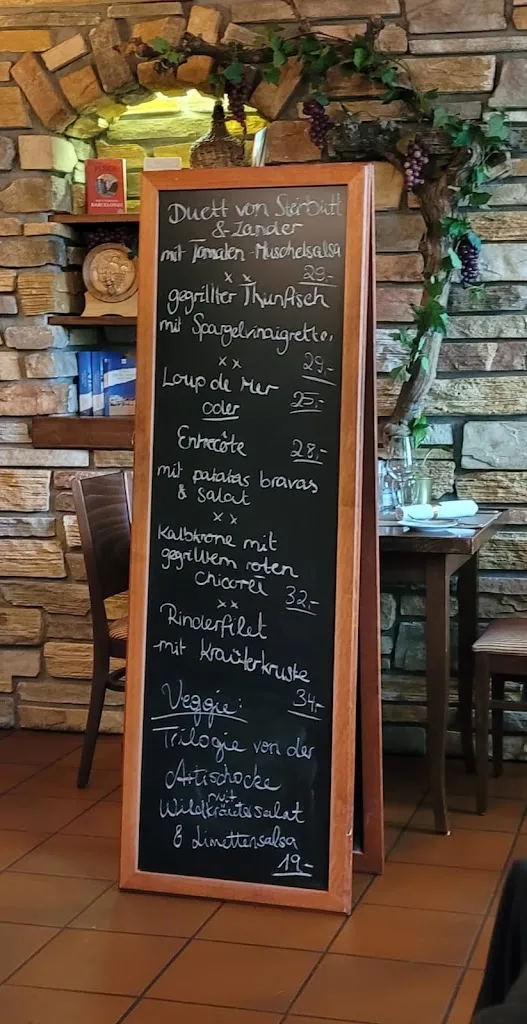 BARCELONA
Duett von Steinbutt
& Zander
mit Tomaten-Muschelsalsa
29,-
x x
gegrillter Thunfisch
mit Spargelvinaigrette,
29,-
x x
Loup de Mer
25,-
oder
Entrecôte 28,-
mit patatas bravas
& Salat
x x
Kalbkrone mit
gegrilltem roten
Chicorée
32,-
x x
Rinderfilet
mit Kräuterkruste
34,-
Veggie:
Trilogie von der
Artischocke
mit
Wildkräutersalat
& Limettensalsa
19,-